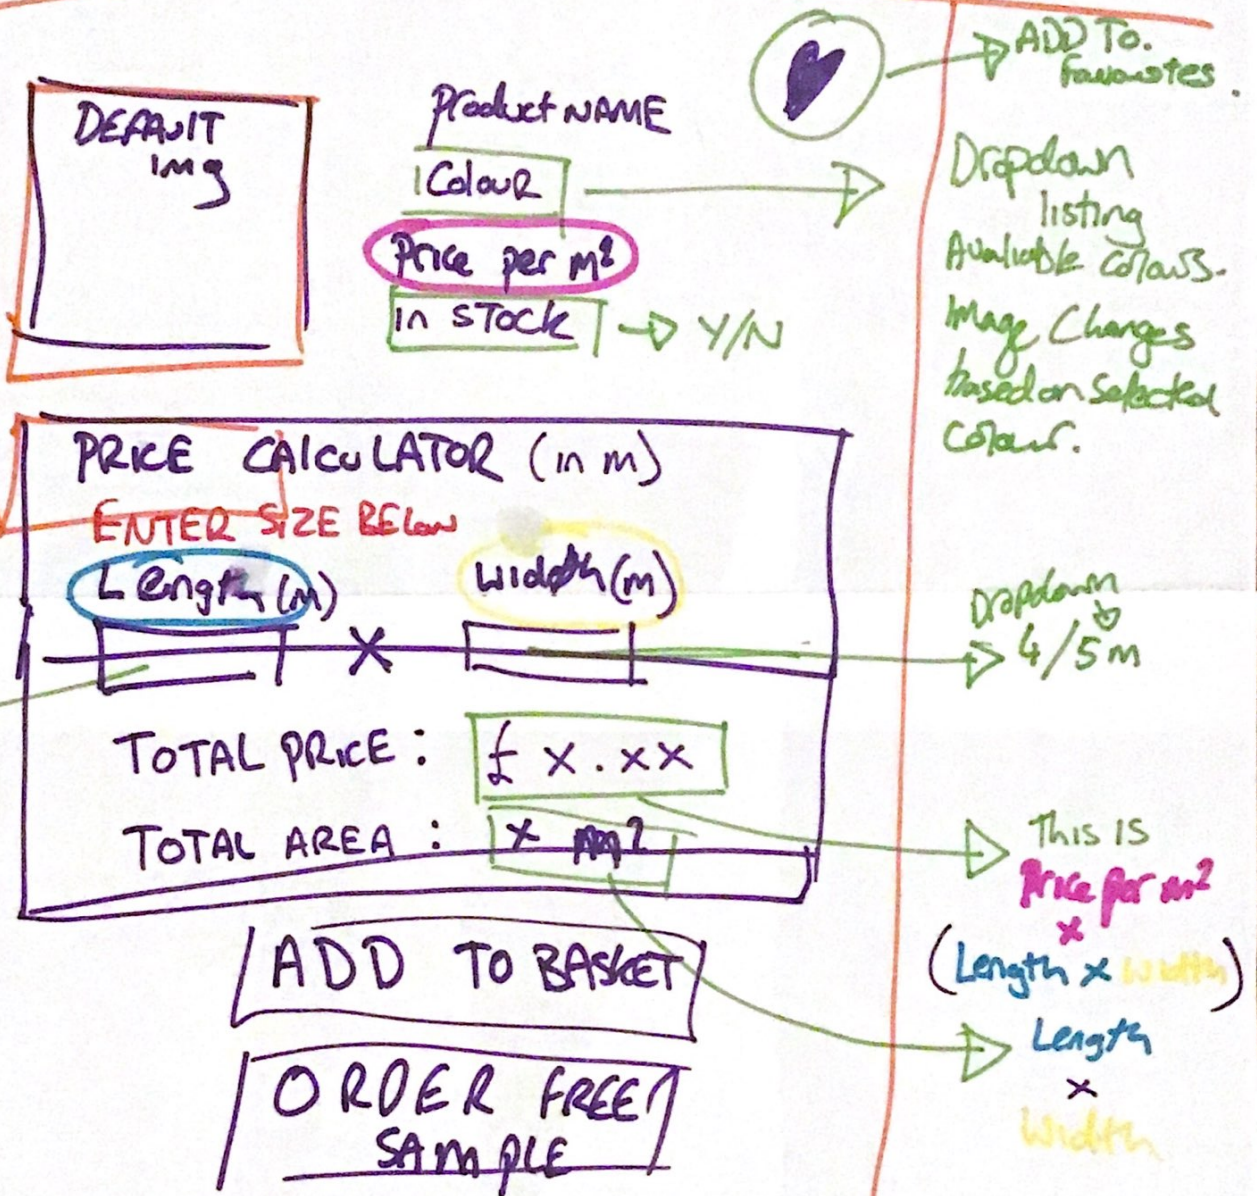 DEFAULT
img
Product NAME
Colour
Price per m²
in STOCK → Y/N
ADD TO.
Favourites.
Dropdown
listing
Available colours.
Image Changes
based on selected
colour.
PRICE CALCULATOR (in m)
ENTER SIZE BELOW
Length (m)
Width (m)
X
Dropdown
4/5m
TOTAL PRICE: £ x.xx
TOTAL AREA : x m²
This is
Price per m²
x
(Length x Width)
Length
x
Width
ADD TO BASKET
ORDER FREE
SAMPLE